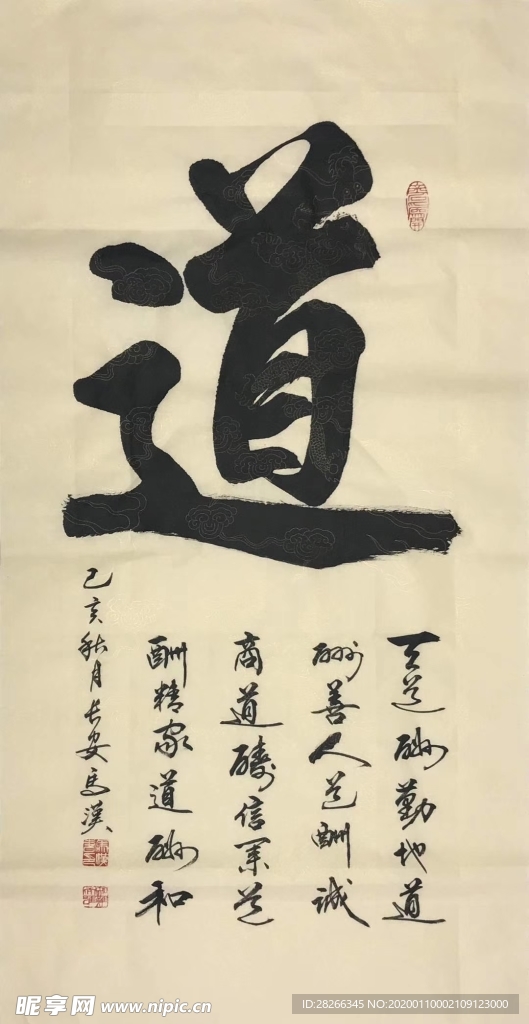 道
天道酬勤地道
酬善人道酬誠
商道酬信業道
酬精家道酬和
己亥秋月長安馬漢
昵享网 www.nipic.cn
ID:28266345 NO:20200110002109123000